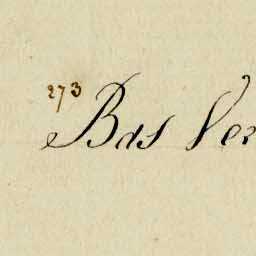 273
Bas Ver